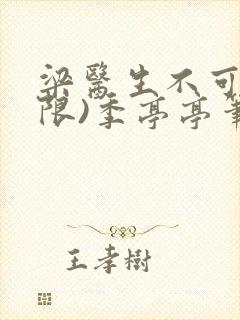 梁醫生不可
限)季亭亭筆
王孝樹